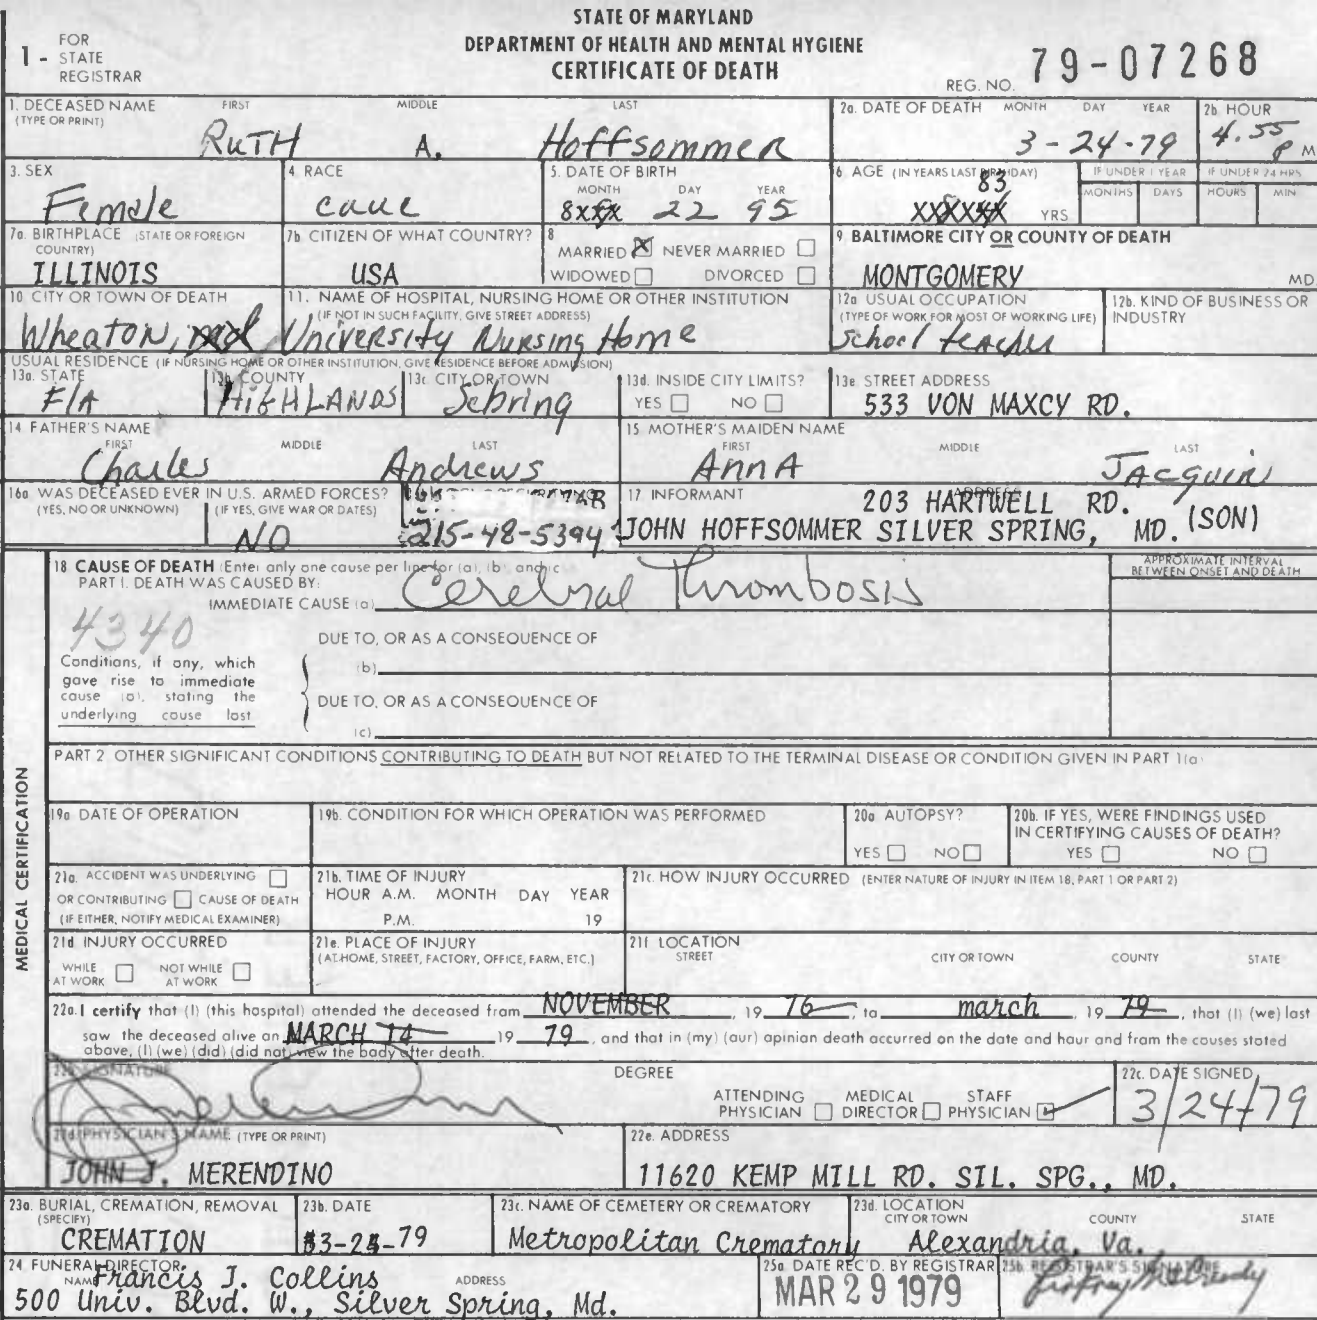 STATE OF MARYLAND
DEPARTMENT OF HEALTH AND MENTAL HYGIENE
CERTIFICATE OF DEATH
1 - FOR STATE REGISTRAR
REG. NO. 79-07268
1. DECEASED NAME (TYPE OR PRINT) FIRST MIDDLE LAST
RUTH A. Hoffsommer
2a. DATE OF DEATH MONTH DAY YEAR
3-24-79
2b. HOUR
4.55 P M
3. SEX
Female
4. RACE
cauc
5. DATE OF BIRTH MONTH DAY YEAR
8 22 95
6 AGE (IN YEARS LAST BIRTHDAY) 83 YRS
IF UNDER 1 YEAR MONTHS DAYS
IF UNDER 24 HRS HOURS MIN
7a. BIRTHPLACE (STATE OR FOREIGN COUNTRY)
ILLINOIS
7b CITIZEN OF WHAT COUNTRY?
USA
8 MARRIED X NEVER MARRIED
WIDOWED DIVORCED
9 BALTIMORE CITY OR COUNTY OF DEATH
MONTGOMERY MD
10 CITY OR TOWN OF DEATH
Wheaton,
11. NAME OF HOSPITAL, NURSING HOME OR OTHER INSTITUTION
(IF NOT IN SUCH FACILITY, GIVE STREET ADDRESS)
University Nursing Home
12a USUAL OCCUPATION
(TYPE OF WORK FOR MOST OF WORKING LIFE)
School teacher
12b. KIND OF BUSINESS OR INDUSTRY
USUAL RESIDENCE (IF NURSING HOME OR OTHER INSTITUTION, GIVE RESIDENCE BEFORE ADMISSION)
13a. STATE
FlA
13b COUNTY
HIGHLANDS
13c CITY OR TOWN
Sebring
13d. INSIDE CITY LIMITS?
YES NO
13e STREET ADDRESS
533 VON MAXCY RD.
14 FATHER'S NAME FIRST MIDDLE LAST
Charles Andrews
15 MOTHER'S MAIDEN NAME FIRST MIDDLE LAST
AnnA JACQUIN
16a WAS DECEASED EVER IN U.S. ARMED FORCES?
(YES, NO OR UNKNOWN) (IF YES, GIVE WAR OR DATES)
NO
215-48-5394
17 INFORMANT ADDRESS
203 HARTWELL RD.
JOHN HOFFSOMMER SILVER SPRING, MD. (SON)
18 CAUSE OF DEATH (Enter only one cause per line for (a), (b), and (c
PART I. DEATH WAS CAUSED BY:
IMMEDIATE CAUSE (a) Cerebral Thrombosis
APPROXIMATE INTERVAL BETWEEN ONSET AND DEATH
4340
Conditions, if any, which
gave rise to immediate
cause (a), stating the
underlying cause last
DUE TO, OR AS A CONSEQUENCE OF
(b)
DUE TO, OR AS A CONSEQUENCE OF
(c)
PART 2 OTHER SIGNIFICANT CONDITIONS CONTRIBUTING TO DEATH BUT NOT RELATED TO THE TERMINAL DISEASE OR CONDITION GIVEN IN PART 1(a)
MEDICAL CERTIFICATION
19a DATE OF OPERATION
19b. CONDITION FOR WHICH OPERATION WAS PERFORMED
20a AUTOPSY?
YES NO
20b. IF YES, WERE FINDINGS USED
IN CERTIFYING CAUSES OF DEATH?
YES NO
21a. ACCIDENT WAS UNDERLYING
OR CONTRIBUTING CAUSE OF DEATH
(IF EITHER, NOTIFY MEDICAL EXAMINER)
21b. TIME OF INJURY
HOUR A.M. MONTH DAY YEAR
P.M. 19
21c. HOW INJURY OCCURRED (ENTER NATURE OF INJURY IN ITEM 18, PART 1 OR PART 2)
21d INJURY OCCURRED
WHILE AT WORK NOT WHILE AT WORK
21e. PLACE OF INJURY
(AT HOME, STREET, FACTORY, OFFICE, FARM, ETC.)
21f LOCATION
STREET CITY OR TOWN COUNTY STATE
22a. I certify that (I) (this hospital) attended the deceased from NOVEMBER, 19 76, to march, 19 79, that (I) (we) last
saw the deceased alive on MARCH 14 19 79, and that in (my) (our) opinion death occurred on the date and hour and from the causes stated
above, (I) (we) (did) (did not) view the body after death.
22b. SIGNATURE
DEGREE
ATTENDING PHYSICIAN MEDICAL DIRECTOR STAFF PHYSICIAN
22c. DATE SIGNED
3/24/79
22d PHYSICIAN'S NAME (TYPE OR PRINT)
JOHN J. MERENDINO
22e. ADDRESS
11620 KEMP MILL RD. SIL. SPG., MD.
23a. BURIAL, CREMATION, REMOVAL (SPECIFY)
CREMATION
23b. DATE
3-2 -79
23c. NAME OF CEMETERY OR CREMATORY
Metropolitan Crematory
23d. LOCATION CITY OR TOWN COUNTY STATE
Alexandria, Va.
24 FUNERAL DIRECTOR NAME ADDRESS
Francis J. Collins
500 Univ. Blvd. W., Silver Spring, Md.
25a DATE REC'D. BY REGISTRAR
MAR 29 1979
25b. REGISTRAR'S SIGNATURE